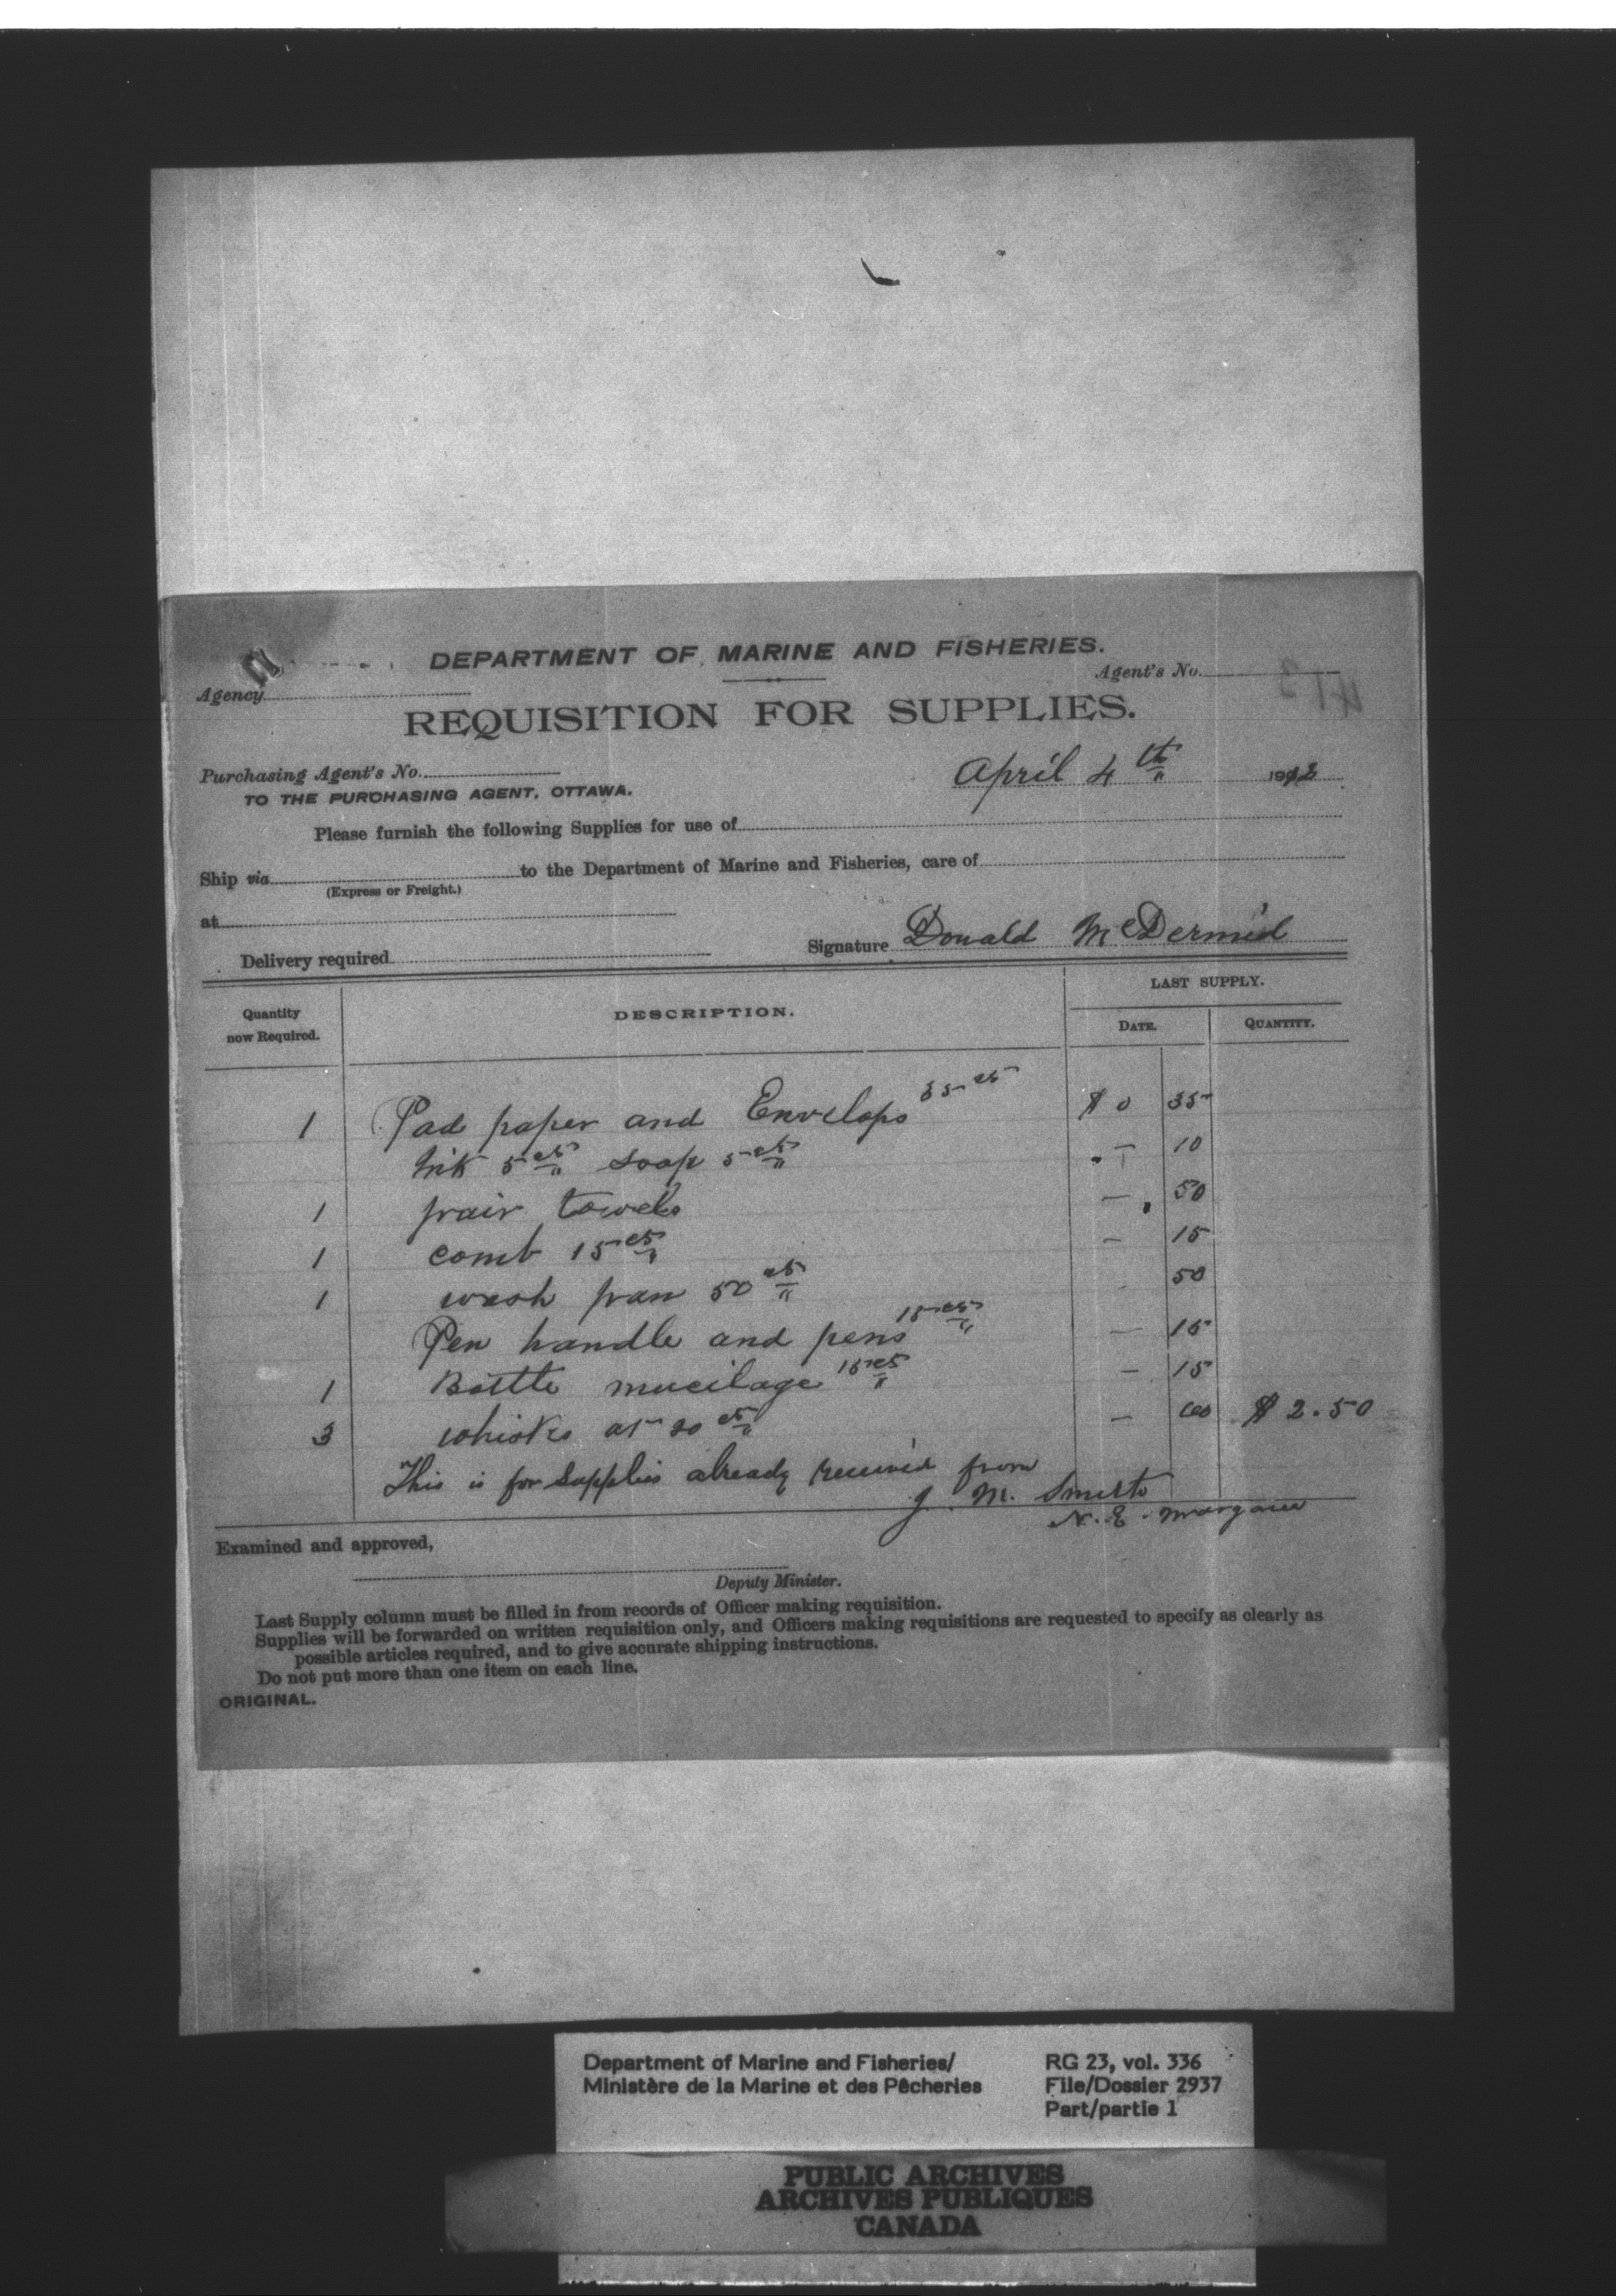 DEPARTMENT OF MARINE AND FISHERIES.
Agency
Agent's No.
REQUISITION FOR SUPPLIES.
Purchasing Agent's No.
April 4th 1912
TO THE PURCHASING AGENT, OTTAWA.
Please furnish the following Supplies for use of
Ship via to the Department of Marine and Fisheries, care of
(Express or Freight.)
at
Signature Donald McDermid
Delivery required
Quantity now Required. DESCRIPTION. LAST SUPPLY.
DATE. QUANTITY.
1 Pad paper and Envelops 35 cts $ 0 35
Ink 5 cts Soap 5 cts - 10
1 pair towels - 50
1 comb 15 cts - 15
1 wash pan 50 cts 50
Pen handle and pens 15 cts - 15
1 Bottle mucilage 15 cts - 15
3 whisks at 20 cts - 60 $ 2.50
This is for Supplies already received from
J. M. Smith
N. E. Margaree
Examined and approved,
Deputy Minister.
Last Supply column must be filled in from records of Officer making requisition.
Supplies will be forwarded on written requisition only, and Officers making requisitions are requested to specify as clearly as
possible articles required, and to give accurate shipping instructions.
Do not put more than one item on each line.
ORIGINAL.
Department of Marine and Fisheries/
Ministère de la Marine et des Pêcheries
RG 23, vol. 336
File/Dossier 2937
Part/partie 1
PUBLIC ARCHIVES
ARCHIVES PUBLIQUES
CANADA